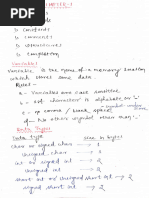 1) Constants
1) Comments
Variable:
Variable is the name of a memory location
which stores some data.
Rules:-
a. Variables are case sensitive
b. 1st character is alphabet or '_'
c. no comma / blank space
d. No other symbol other than '_'
Data Types
Data type
Size in bytes
char or signed char → 1
Unsigned char → 1
int or signed int → 2
Unsigned int → 2
short int or Unsigned short int → 2
signed short int → 2